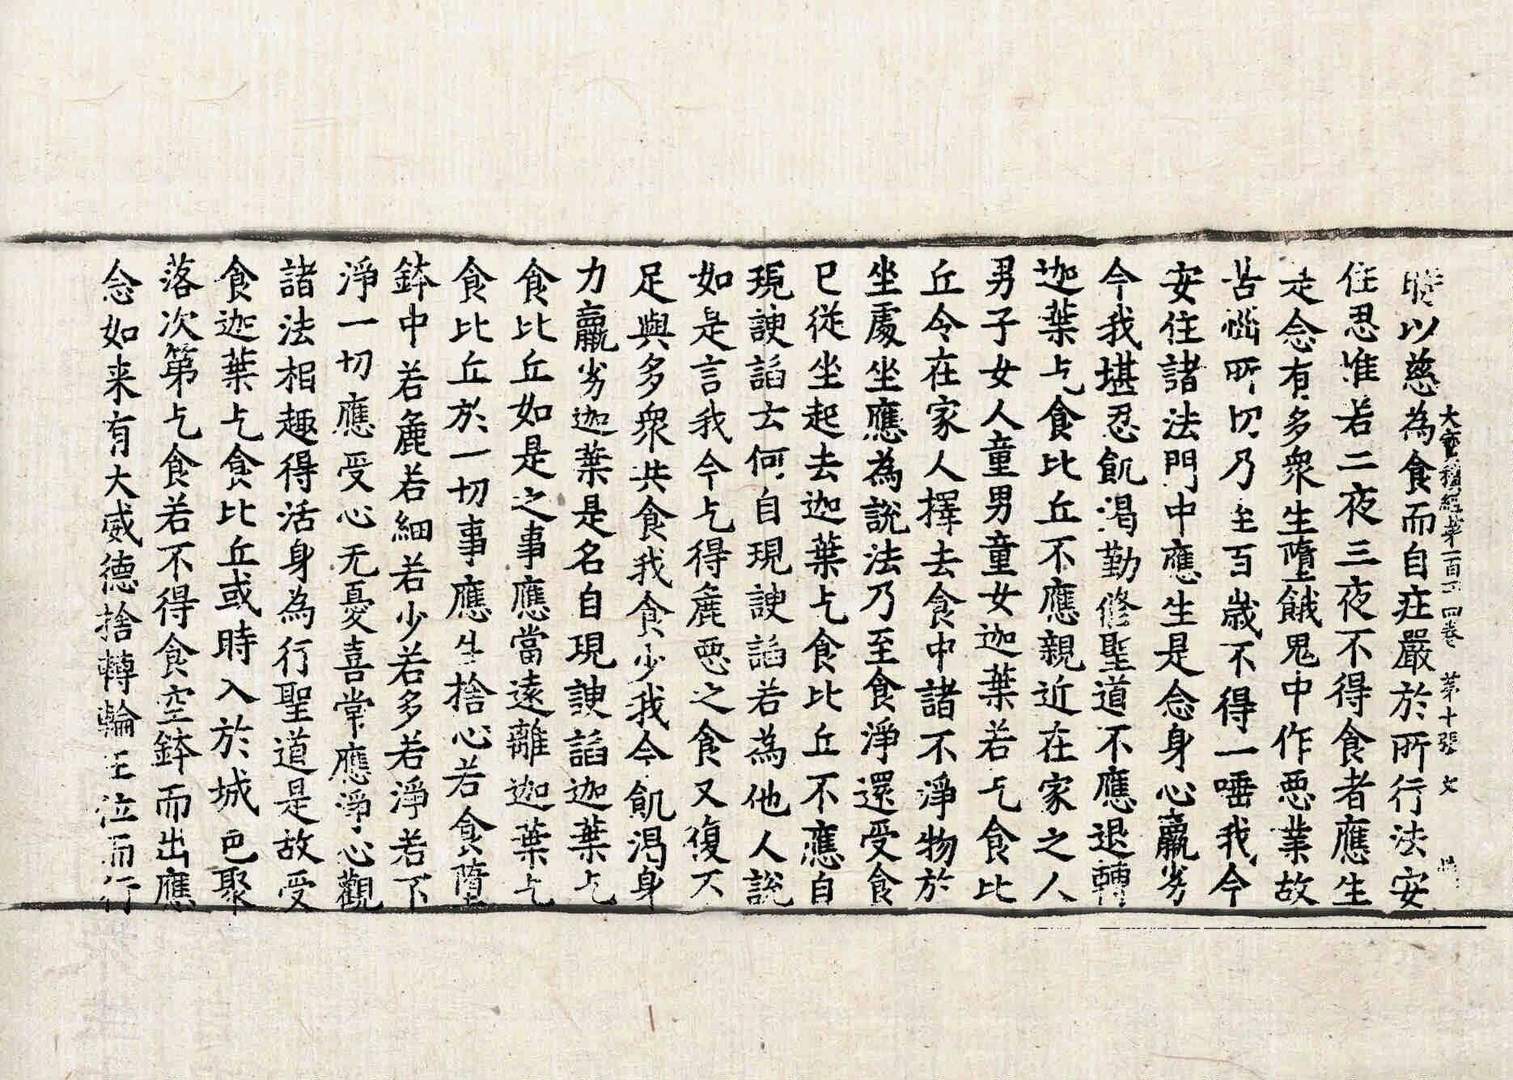 大寶積經第一百十四卷 第十張 文
時以慈為食而自庄嚴於所行法安
住思惟若二夜三夜不得食者應生
走念有多衆生墮餓鬼中作惡業故
苦惱所切乃至百歲不得一唾我今
安住諸法門中應生是念身心羸劣
今我堪忍飢渴勤修聖道不應退轉
迦葉乞食比丘不應親近在家之人
男子女人童男童女迦葉若乞食比
丘令在家人擇去食中諸不淨物於
坐處坐應為說法乃至食淨還受食
已從坐起去迦葉乞食比丘不應自
現諛諂云何自現諛諂若為他人說
如是言我今乞得麁惡之食又復不
足與多衆共食我食少我今飢渴身
力羸劣迦葉是名自現諛諂迦葉乞
食比丘如是之事應當遠離迦葉乞
食比丘於一切事應生捨心若食墮
鉢中若麁若細若少若多若淨若不
淨一切應受心无憂喜常應淨心觀
諸法相趣得活身為行聖道是故受
食迦葉乞食比丘或時入於城邑聚
落次第乞食若不得食空鉢而出應
念如来有大威德捨轉輪王位而行